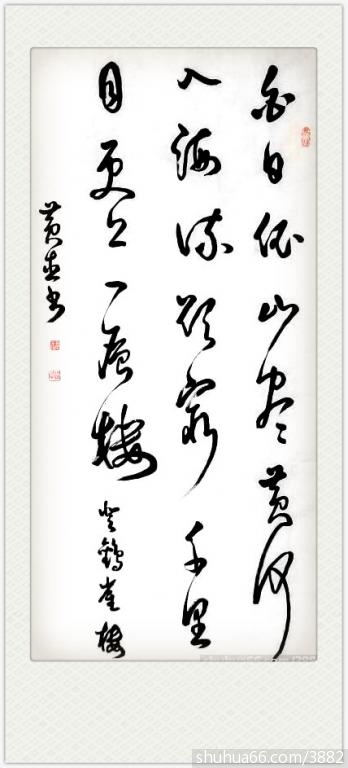 白日依山尽黄河
入海流欲窮千里
目更上一層樓
登鸛雀樓
黄 书
shuhua66.com/3882